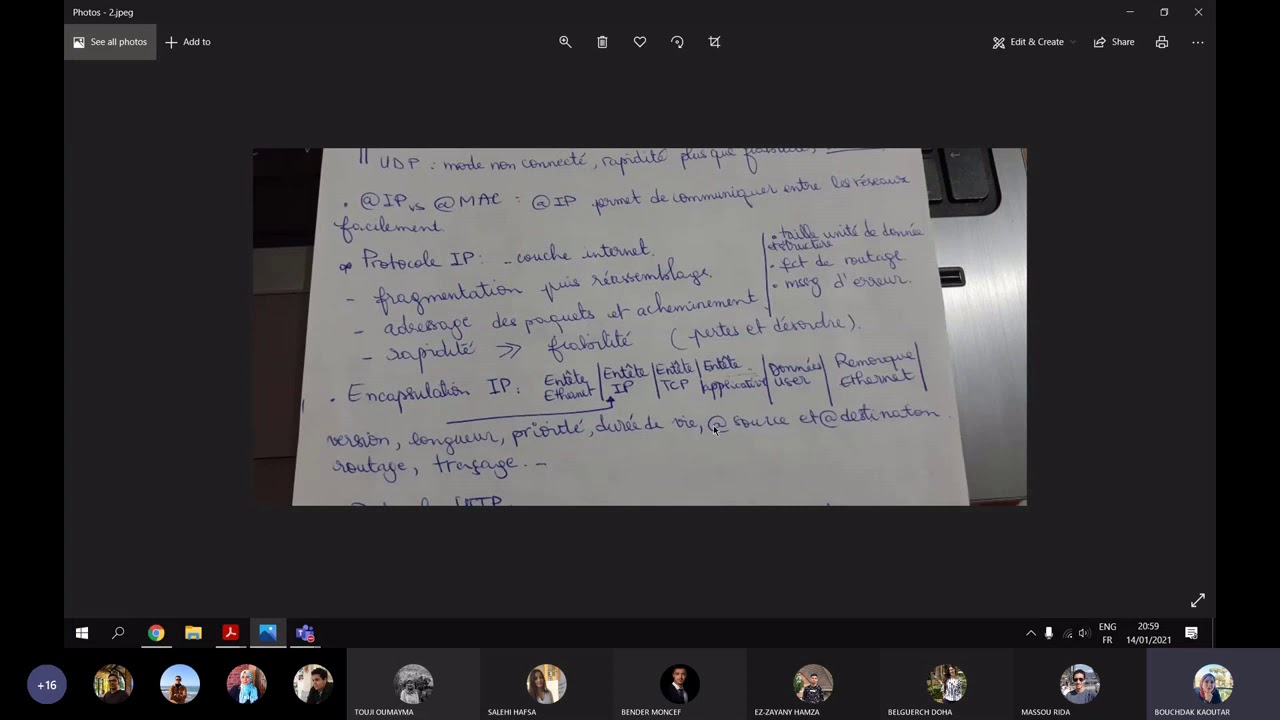 Photos - 2.jpeg
See all photos
Add to
Edit & Create
Share
UDP : mode non connecté, rapidité plus que
. @IP vs @MAC : @IP permet de communiquer entre les réseaux
facilement.
Protocole IP : - couche internet.
- fragmentation puis réassemblage.
- adressage des paquets et acheminement
- rapidité >> fiabilité (pertes et désordre).
• taille unité de donnée
structure
• fct de routage.
• mssg d'erreur.
. Encapsulation IP : Entête Ethernet | Entête IP | Entête TCP | Entête applicative | Données user | Remorque Ethernet |
version, longueur, priorité, durée de vie, @ source et @ destination.
routage, traçage. -
HTTP
ENG
FR
20:59
14/01/2021
+16
TOUJI OUMAYMA
SALEHI HAFSA
BENDER MONCEF
EZ-ZAYANY HAMZA
BELGUERCH DOHA
MASSOU RIDA
BOUCHDAK KAOUTAR